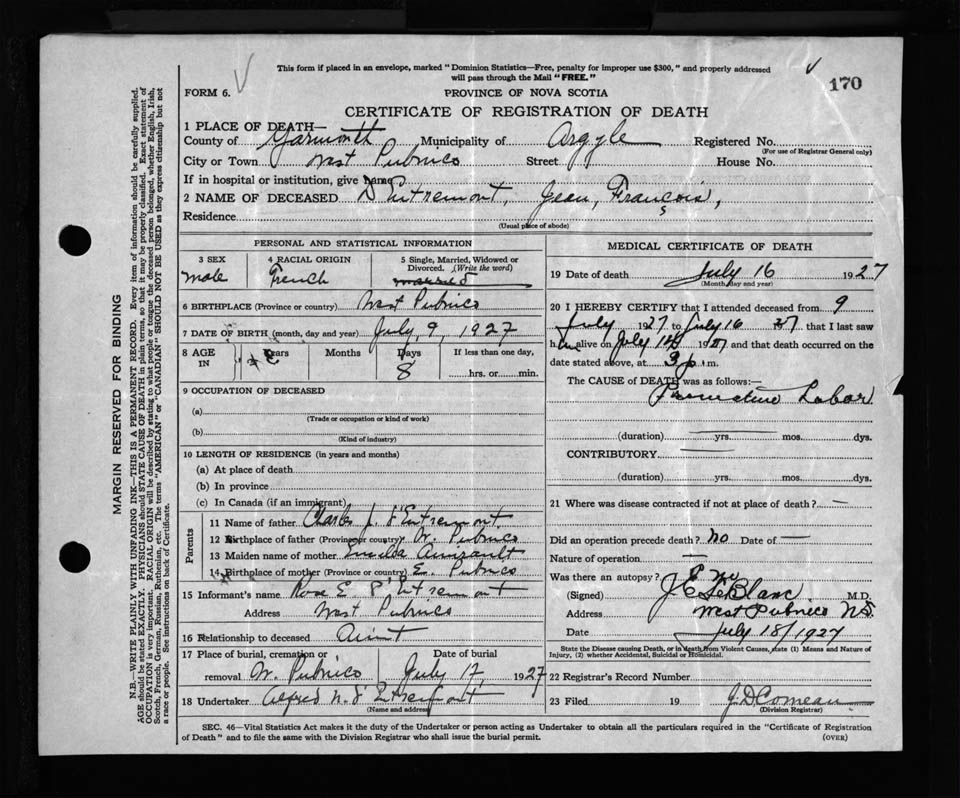 This form if placed in an envelope, marked "Dominion Statistics—Free, penalty for improper use $300," and properly addressed
will pass through the Mail "FREE."
170
FORM 6.
PROVINCE OF NOVA SCOTIA
CERTIFICATE OF REGISTRATION OF DEATH
1 PLACE OF DEATH—
County of Yarmouth Municipality of Argyle Registered No.
(For use of Registrar General only)
City or Town West Pubnico Street House No.
If in hospital or institution, give name
2 NAME OF DECEASED D'Entremont, Jean, François,
Residence
(Usual place of abode)
PERSONAL AND STATISTICAL INFORMATION
3 SEX 4 RACIAL ORIGIN 5 Single, Married, Widowed or
Divorced. (Write the word)
male French
6 BIRTHPLACE (Province or country) West Pubnico
7 DATE OF BIRTH (month, day and year) July, 9, 1927
8 AGE IN Years Months Days If less than one day,
8 hrs. or min.
9 OCCUPATION OF DECEASED
(a)
(Trade or occupation or kind of work)
(b)
(Kind of industry)
10 LENGTH OF RESIDENCE (in years and months)
(a) At place of death
(b) In province
(c) In Canada (if an immigrant)
Parents
11 Name of father Charles J. D'Entremont
12 Birthplace of father (Province or country) W. Pubnico
13 Maiden name of mother Amirault
14 Birthplace of mother (Province or country) E. Pubnico
15 Informant's name Rose E. D'Entremont
Address West Pubnico
16 Relationship to deceased Aunt
17 Place of burial, cremation or Date of burial
removal W. Pubnico July 17, 1927
18 Undertaker Alfred N. d'Entremont
(Name and address)
MEDICAL CERTIFICATE OF DEATH
19 Date of death July 16 1927
(Month, day and year)
20 I HEREBY CERTIFY that I attended deceased from 9
July 1927 to July 16 27 that I last saw
him alive on July 19 and that death occurred on the
date stated above, at 3 p. m.
The CAUSE of DEATH was as follows:—
Premature Labor
(duration) yrs. mos. dys.
CONTRIBUTORY
(duration) yrs. mos. dys.
21 Where was disease contracted if not at place of death? —
Did an operation precede death? no Date of —
Nature of operation —
Was there an autopsy? no
(Signed) J E LeBlanc M.D.
Address West Pubnico N.S.
Date July 18/1927
State the Disease causing Death, or in death from Violent Causes, state (1) Means and Nature of
Injury, (2) whether Accidental, Suicidal or Homicidal.
22 Registrar's Record Number
23 Filed 19 J. D. Comeau
(Division Registrar)
SEC. 46—Vital Statistics Act makes it the duty of the Undertaker or person acting as Undertaker to obtain all the particulars required in the "Certificate of Registration
of Death" and to file the same with the Division Registrar who shall issue the burial permit.
(OVER)
MARGIN RESERVED FOR BINDING
N.B.—WRITE PLAINLY WITH UNFADING INK—THIS IS A PERMANENT RECORD. Every item of information should be carefully supplied.
AGE should be stated EXACTLY. PHYSICIANS should STATE CAUSE OF DEATH in plain terms, so that it may be properly classified. Exact statement of
OCCUPATION is very important. RACIAL ORIGIN will be described by stating to what people or tongue the deceased person belonged, whether English, Irish,
Scotch, French, German, Russian, Ruthenian, etc. The terms "AMERICAN" or "CANADIAN" SHOULD NOT BE USED as they express citizenship but not
a race or people. See instructions on back of Certificate.